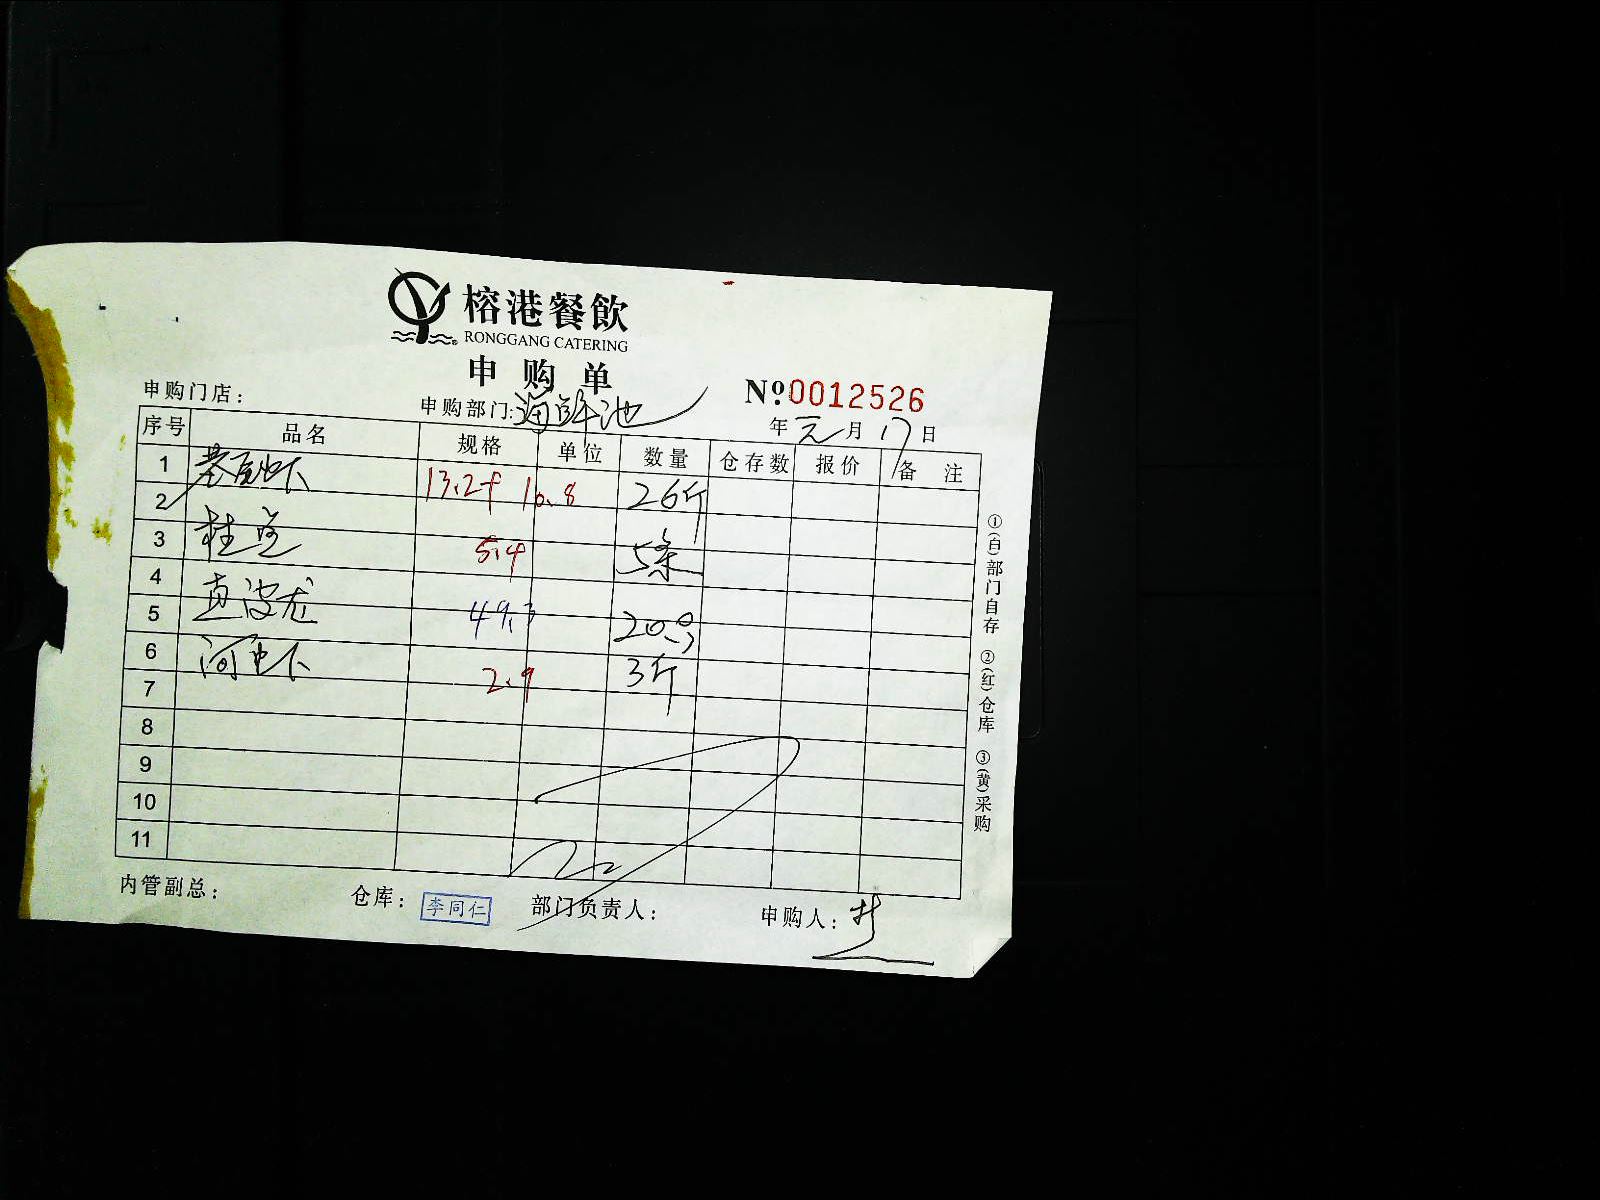 榕港餐飲
RONGGANG CATERING
申购单
申购门店： 申购部门：海鲜池 Nº0012526
年 元 月 17 日
序号 品名 规格 单位 数量 仓存数 报价 备注
1 基围虾 13.2 10.8 26斤
2
3 桂鱼 5.4 5条
4
5 直波龙 49.3 20
6 河虾 2.9 3斤
7
8
9
10
11
内管副总： 仓库：李同仁 部门负责人： 申购人：
①(白)部门自存 ②(红)仓库 ③(黄)采购